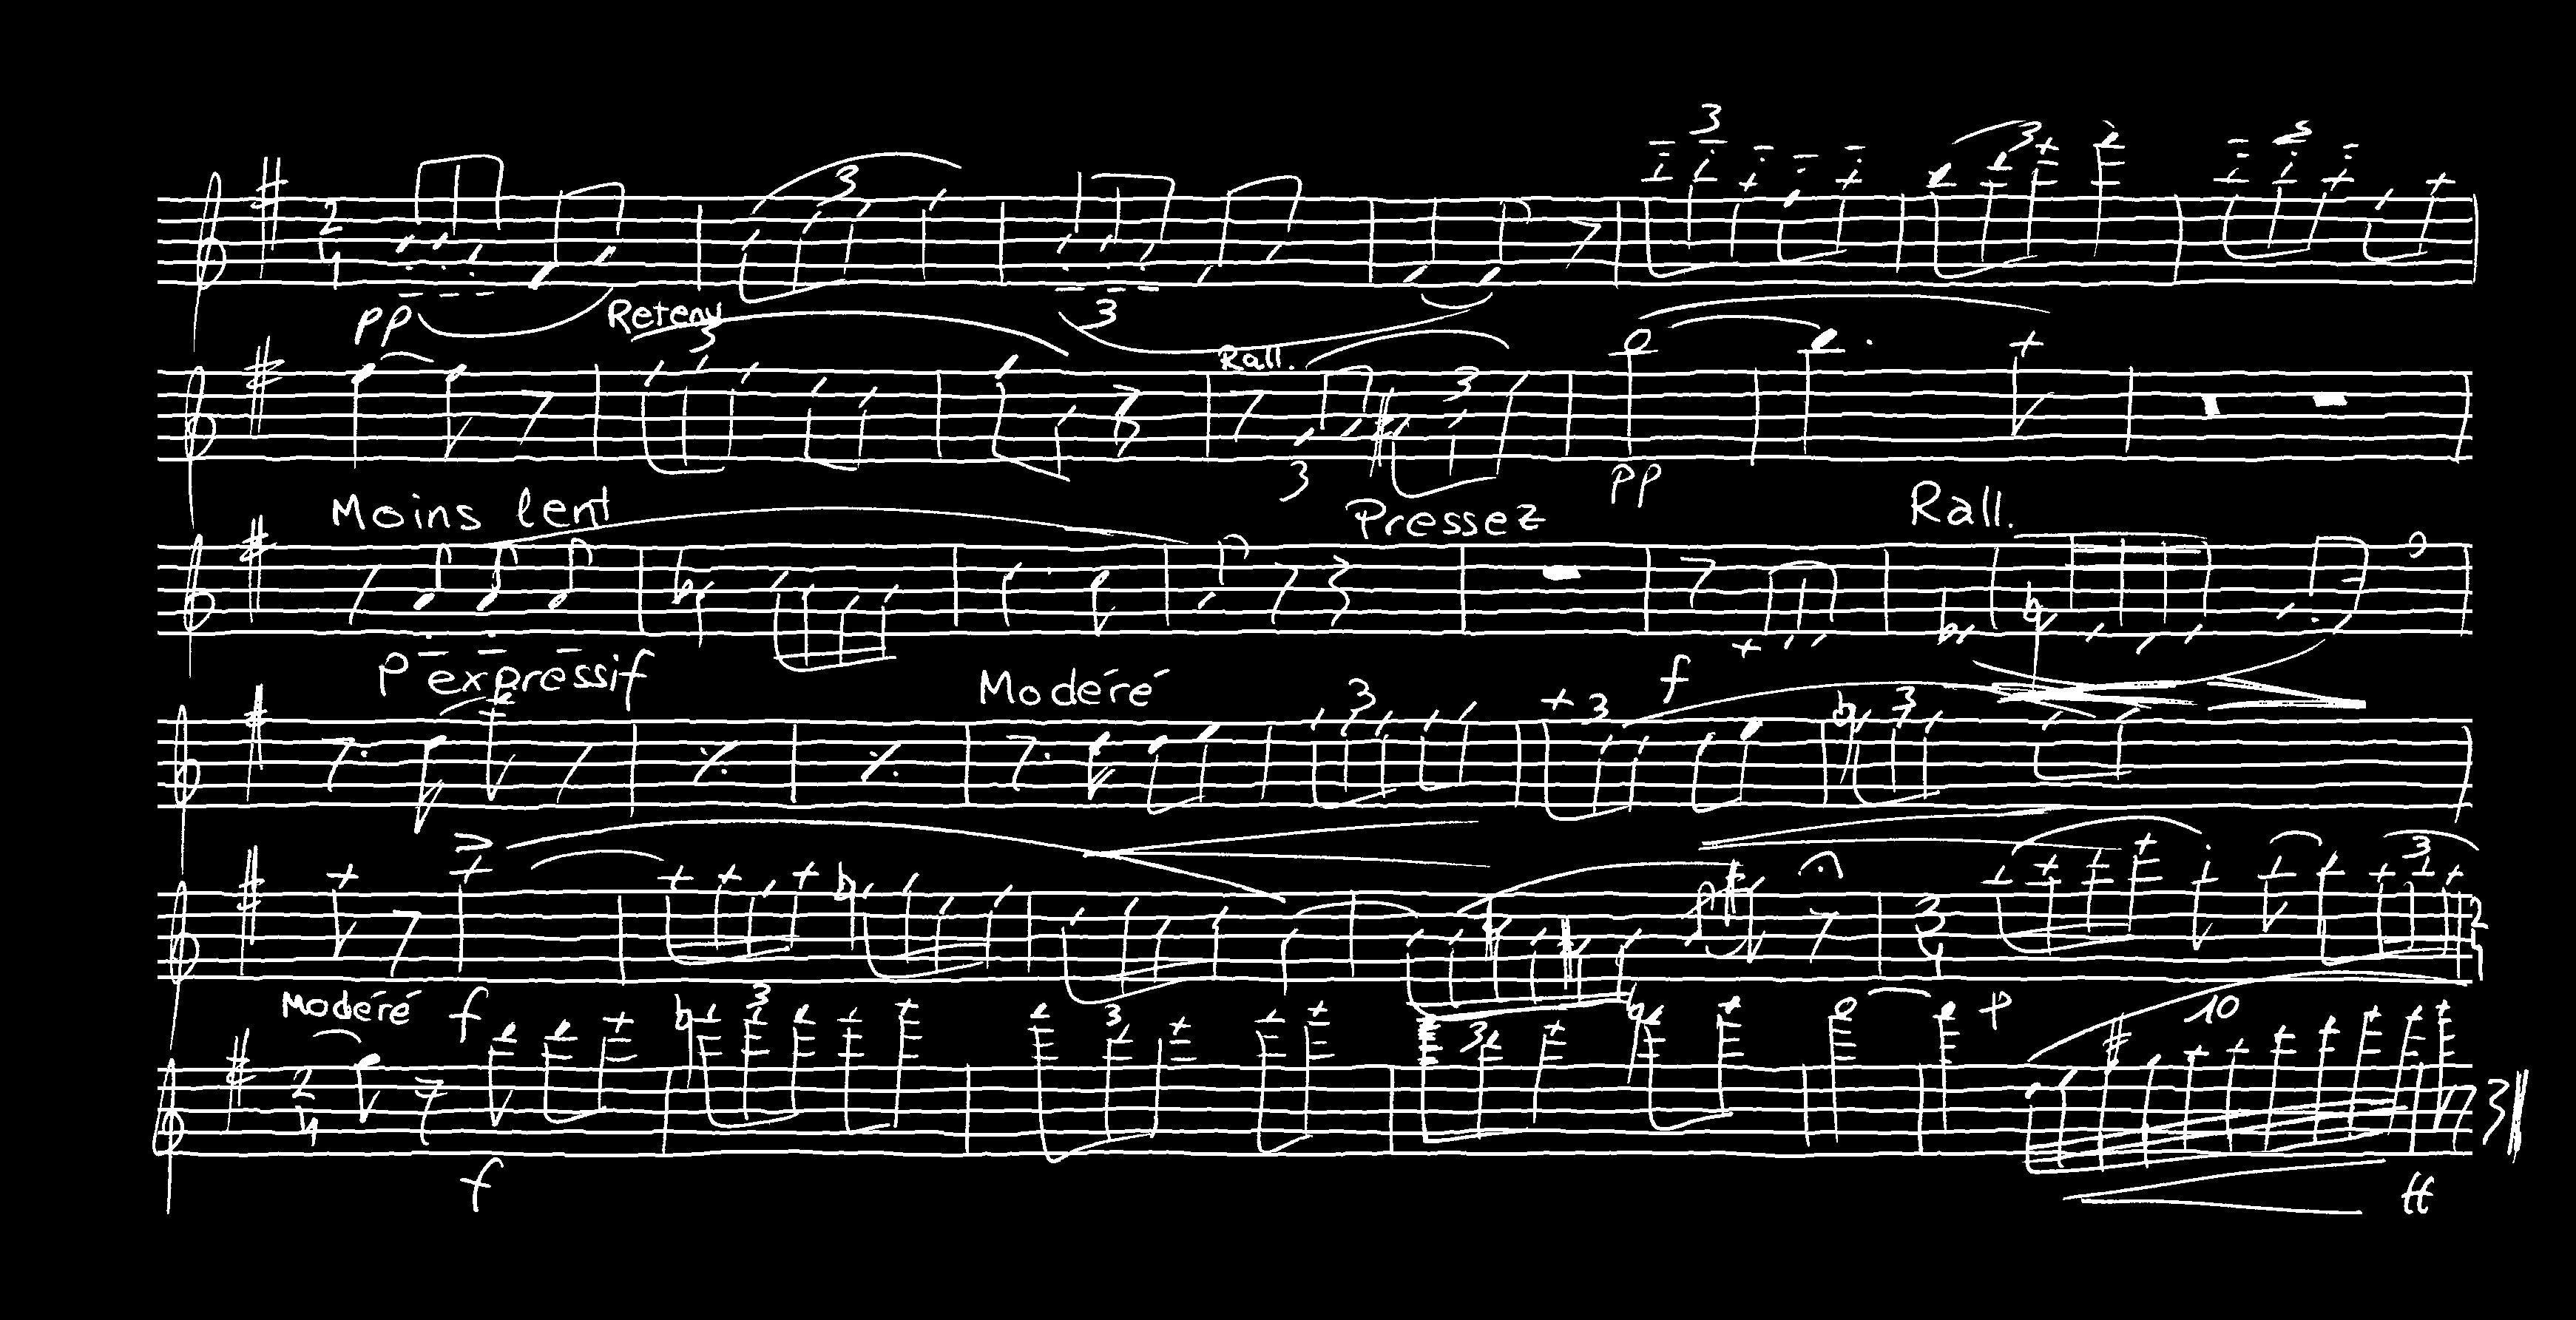 3 3
2 3 3
4
pp Retenu 3
3 Rall. 3
3 pp
Moins lent Pressez Rall.
p expressif Modéré f
3 3 3
3
3 4
Modéré f 3 3 3 p 10
2 4
f ff